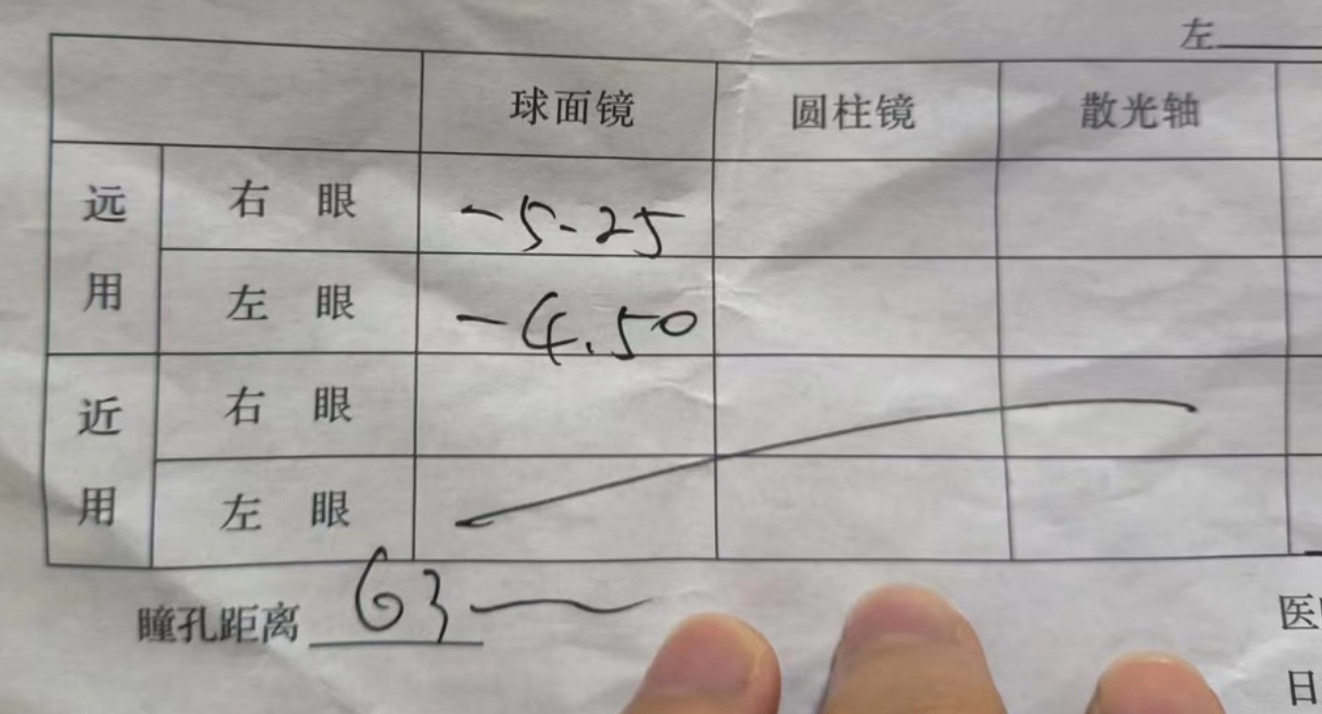 左
球面镜 圆柱镜 散光轴
远用 右眼 -5.25
左眼 -4.50
近用 右眼
左眼
瞳孔距离 63
医
日